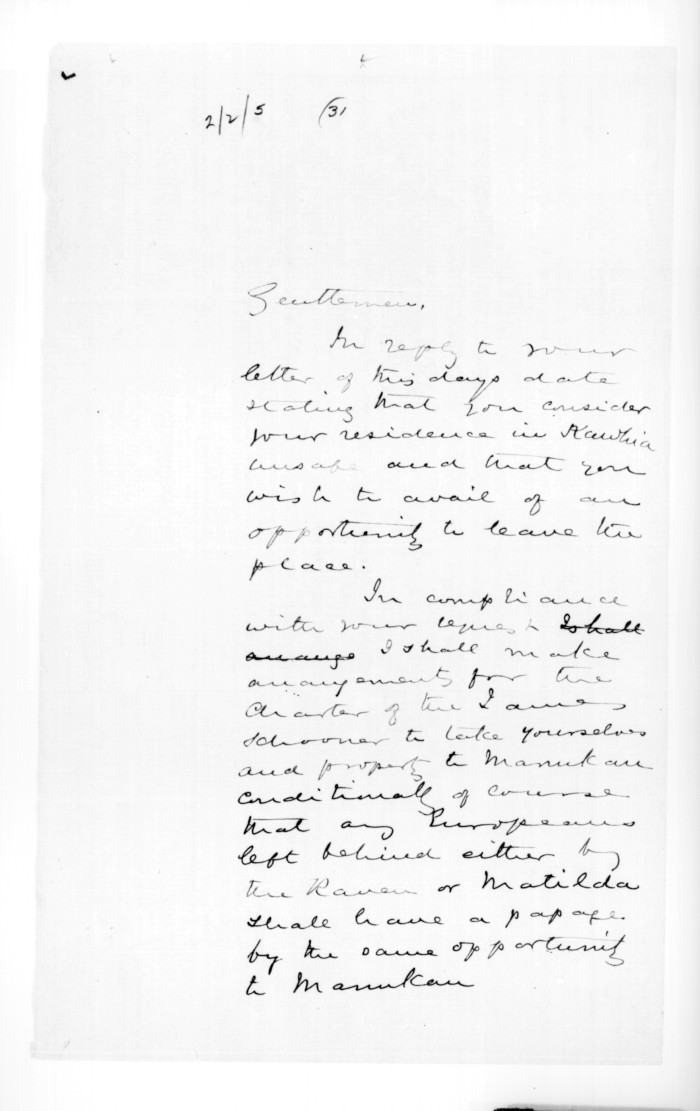 2/2/5 (31
Gentlemen,
In reply to your
letter of this days date
stating that you consider
your residence in Kawhia
unsafe and that you
wish to avail of an
opportunity to leave the
place.
In compliance
with your request I shall
arrange I shall make
arrangements for the
Charter of the James
schooner to take yourselves
and property to Manukau
conditionally of course
that any Europeans
left behind either by
the Raven or Matilda
shall have a passage
by the same opportunity
to Manukau